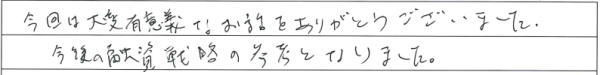 今回は大変有意義なお話をありがとうございました。
今後の融資戦略の参考となりました。